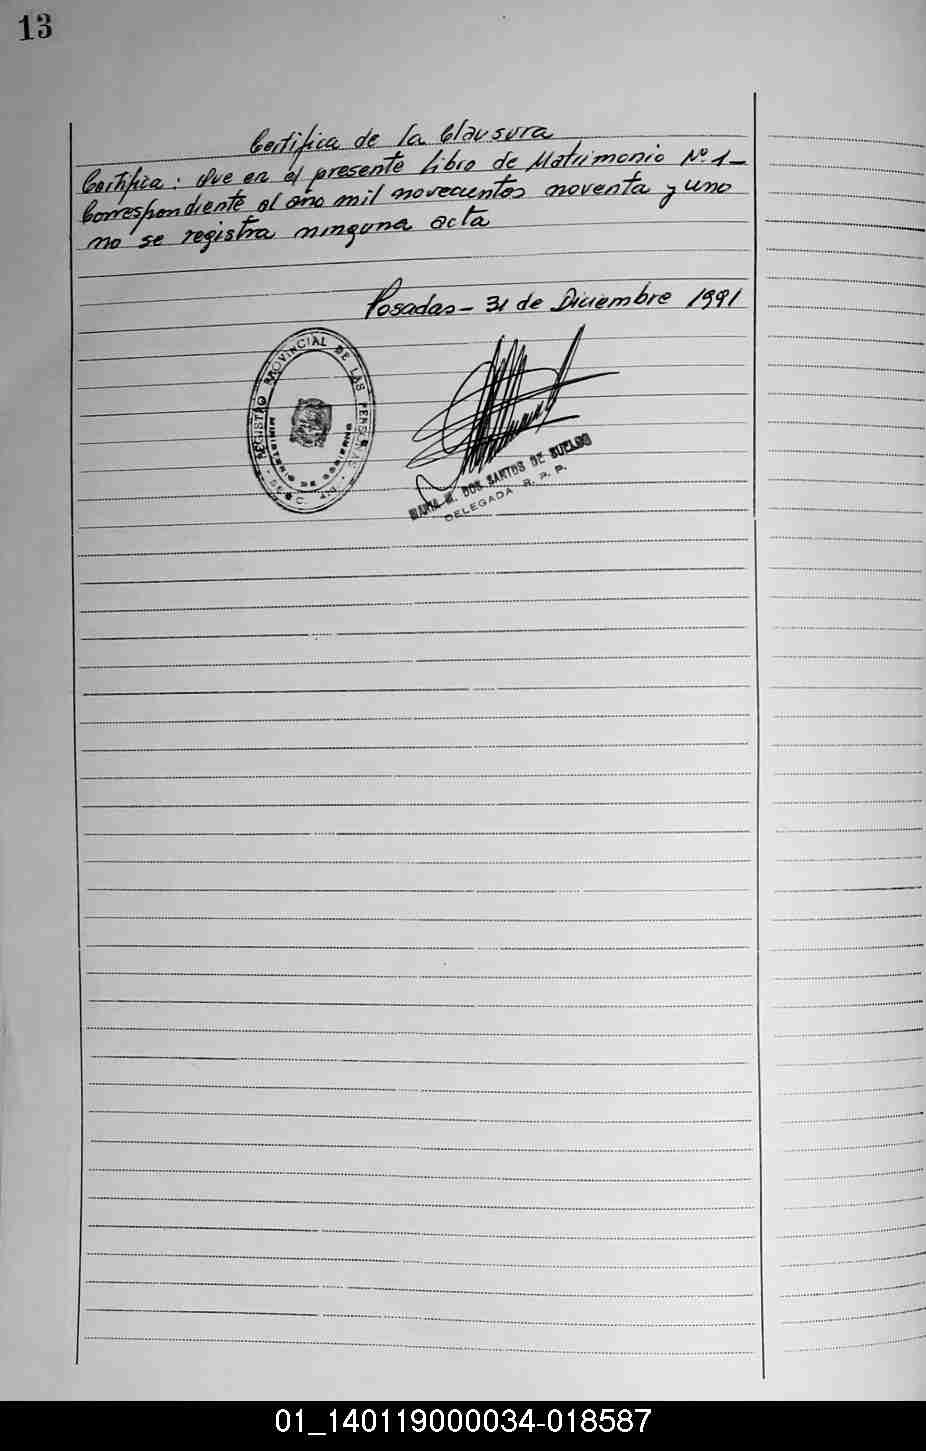 13
Certifica de la Clausura
Certifica: Que en el presente Libro de Matrimonio Nº 1-
Correspondiente al año mil novecientos noventa y uno
no se registra ninguna acta
Posadas - 31 de Diciembre 1991
REGISTRO PROVINCIAL DE LAS PERSONAS
MINISTERIO DE GOBIERNO
MARIA M. DOS SANTOS DE SUELDO
DELEGADA R. P. P.
01_140119000034-018587